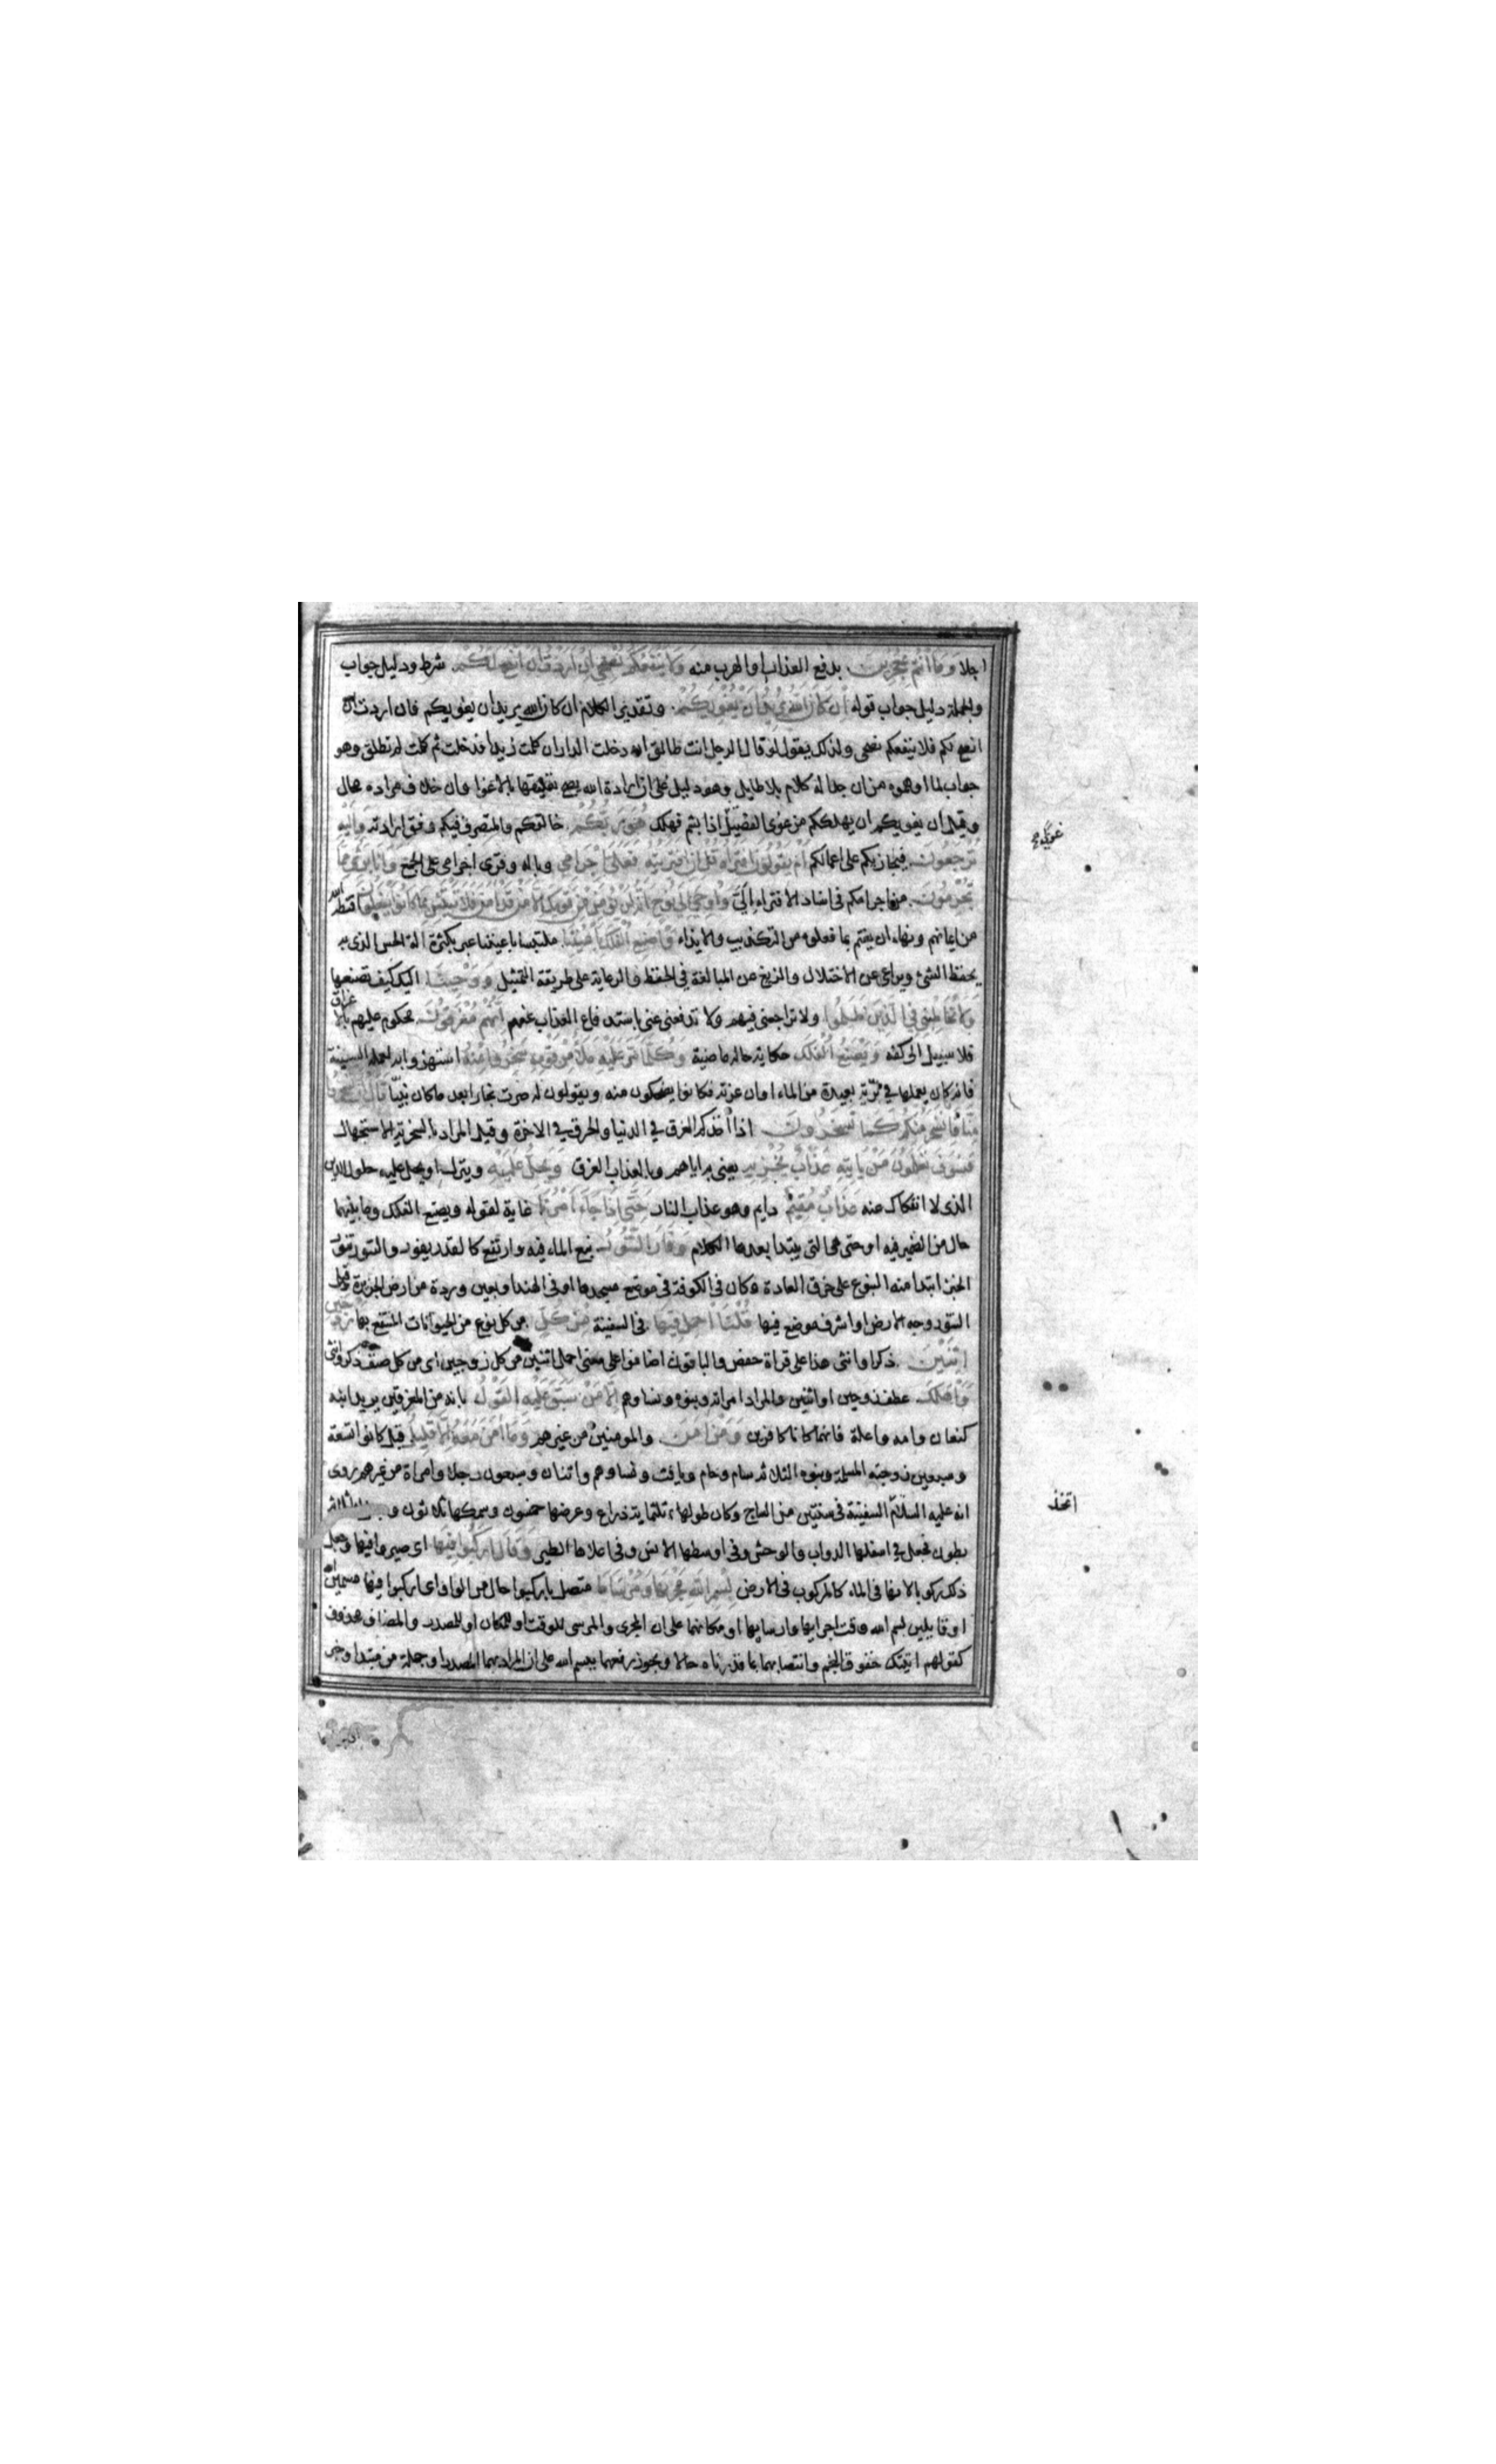 اجلا وَمَا أَنْتُمْ بِمُعْجِزِينَ بدفع العذاب او الهرب منه وَلَا يَنْفَعُكُمْ نُصْحِي إِنْ أَرَدْتُ أَنْ أَنْصَحَ لَكُمْ شرط ودليل جواب
والجملة دليل جواب قوله إِنْ كَانَ اللَّهُ يُرِيدُ أَنْ يُغْوِيَكُمْ وتقدير الكلام ان كان الله يريد ان يغويكم فان اردت ان
انصح لكم فلا ينفعكم نصحى ولذلك يقول لو قال الرجل انت طالق ان دخلت الدار ان كلت زيدا فدخلت ثم كلت لم تطلق وهو
جواب لما اوهموه من ان جداله كلام بلا طايل وهو دليل على ان ارادة الله يصح تعليقها بالاغوا وان خلاف مراده محال
وقيل ان يغويكم ان يهلككم من غوى الفصيل اذا بشم فهلك هُوَ رَبُّكُمْ خالقكم والمتصرف فيكم وفق ارادته وَإِلَيْهِ
تُرْجَعُونَ فيجازيكم على اعمالكم أَمْ يَقُولُونَ افْتَرَاهُ قُلْ إِنِ افْتَرَيْتُهُ فَعَلَيَّ إِجْرَامِي وباله وقرى اجرامى على الجمع وَأَنَا بَرِيءٌ مِمَّا
تُجْرِمُونَ من اجرامكم فى اسناد الافتراء الىّ وَأُوحِيَ إِلَى نُوحٍ أَنَّهُ لَنْ يُؤْمِنَ مِنْ قَوْمِكَ إِلَّا مَنْ قَدْ آمَنَ فَلَا تَبْتَئِسْ بِمَا كَانُوا يَفْعَلُونَ اقنطه الله
من ايمانهم ونهاه ان يغتم بما فعلوه من التكذيب والايذاء وَاصْنَعِ الْفُلْكَ بِأَعْيُنِنَا ملتبسا باعيننا عبر بكثرة الة الحس الذى به
يحفظ الشئ ويراعى عن الاختلال والزيغ عن المبالغة فى الحفظ والرعاية على طريقة التمثيل وَوَحْيِنَا اليك كيف تصنعها
وَلَا تُخَاطِبْنِي فِي الَّذِينَ ظَلَمُوا ولا تراجعنى فيهم ولا تدعنى باستدفاع العذاب عنهم إِنَّهُمْ مُغْرَقُونَ محكوم عليهم بالاغراق
فلا سبيل الى كفه وَيَصْنَعُ الْفُلْكَ حكاية حال ماضية وَكُلَّمَا مَرَّ عَلَيْهِ مَلَأٌ مِنْ قَوْمِهِ سَخِرُوا مِنْهُ استهزوا به لعمله السفينة
فانه كان يعملها فى برّية بعيدة من الماء اوان عزته فكانوا يضحكون منه ويقولون له صرت نجارا بعد ما كان نبيّا قَالَ إِنْ تَسْخَرُوا
مِنَّا فَإِنَّا نَسْخَرُ مِنْكُمْ كَمَا تَسْخَرُونَ اذا اخذكم الغرق فى الدنيا والحرق فى الاخرة وقيل المراد بالسخرية الاستجهال
فَسَوْفَ تَعْلَمُونَ مَنْ يَأْتِيهِ عَذَابٌ يُخْزِيهِ يعنى به اياهم وبالعذاب الغرق وَيَحِلُّ عَلَيْهِ وينزل او يحل عليه حلول الدين
الذى لا انفكاك عنه عَذَابٌ مُقِيمٌ دايم وهو عذاب النار حَتَّى إِذَا جَاءَ أَمْرُنَا غاية لقوله ويصنع الفلك وما بينهما
حال من الضمير فيه او حتى هى التى يبتدا بعدها الكلام وَفَارَ التَّنُّورُ نبع الماء فيه وارتفع كالقدر يفور والتنور تنور
الخبز ابتدا منه النبوع على خرق العادة وكان فى الكوفة فى موضع مسجدها او فى الهند او بعين وردة من ارض الجزيرة وقيل
التنور وجه الارض او اشرف موضع فيها قُلْنَا احْمِلْ فِيهَا فى السفينة مِنْ كُلٍّ من كل نوع من الحيوانات المنتفع بها زَوْجَيْنِ
اثْنَيْنِ ذكرا وانثى هذا على قراة حفص والباقون اضافوا على معنى احمل اثنين من كل زوجين اى من كل صنف ذكر وانثى
وَأَهْلَكَ عطف زوجين او اثنين والمراد امراته وبنوه ونساوهم إِلَّا مَنْ سَبَقَ عَلَيْهِ الْقَوْلُ بانه من المغرقين يريد ابنه
كنعان وامه واعلة فانهما كانا كافرين وَمَنْ آمَنَ والمومنين من غيرهم وَمَا آمَنَ مَعَهُ إِلَّا قَلِيلٌ قيل كانوا تسعة
وسبعين زوجته المسلمة وبنوه الثلاثة سام وحام ويافث ونساوهم واثنان وسبعون رجلا وامراة من غيرهم روى
انه عليه السلام السفينة فى سنتين من الساج وكان طولها ثلثماية ذراع وعرضها خمسون وسمكها ثلاثون و
بطون فجعل فى اسفلها الدواب والوحش وفى اوسطها الانس وفى اعلاها الطير وَقَالَ ارْكَبُوا فِيهَا اى صيروا فيها وجعل
ذلك ركوبا لانها فى الماء كالمركوب فى الارض بِسْمِ اللَّهِ مَجْرَاهَا وَمُرْسَاهَا متصل باركبوا حال من الواو اى اركبوا فيها مسمين الله
او قايلين بسم الله وقت اجرايها وارسايها او مكانهما على ان المجرى والمرسى للوقت او للمكان او للمصدر والمضاف محذوف
كقولهم اتيتك خفوق النجم وانتصابهما بما قدرناه حالا ويجوز رفعهما ببسم الله على ان المراد بهما المصدر او جملة من مبتدا وخبر
اتخذ